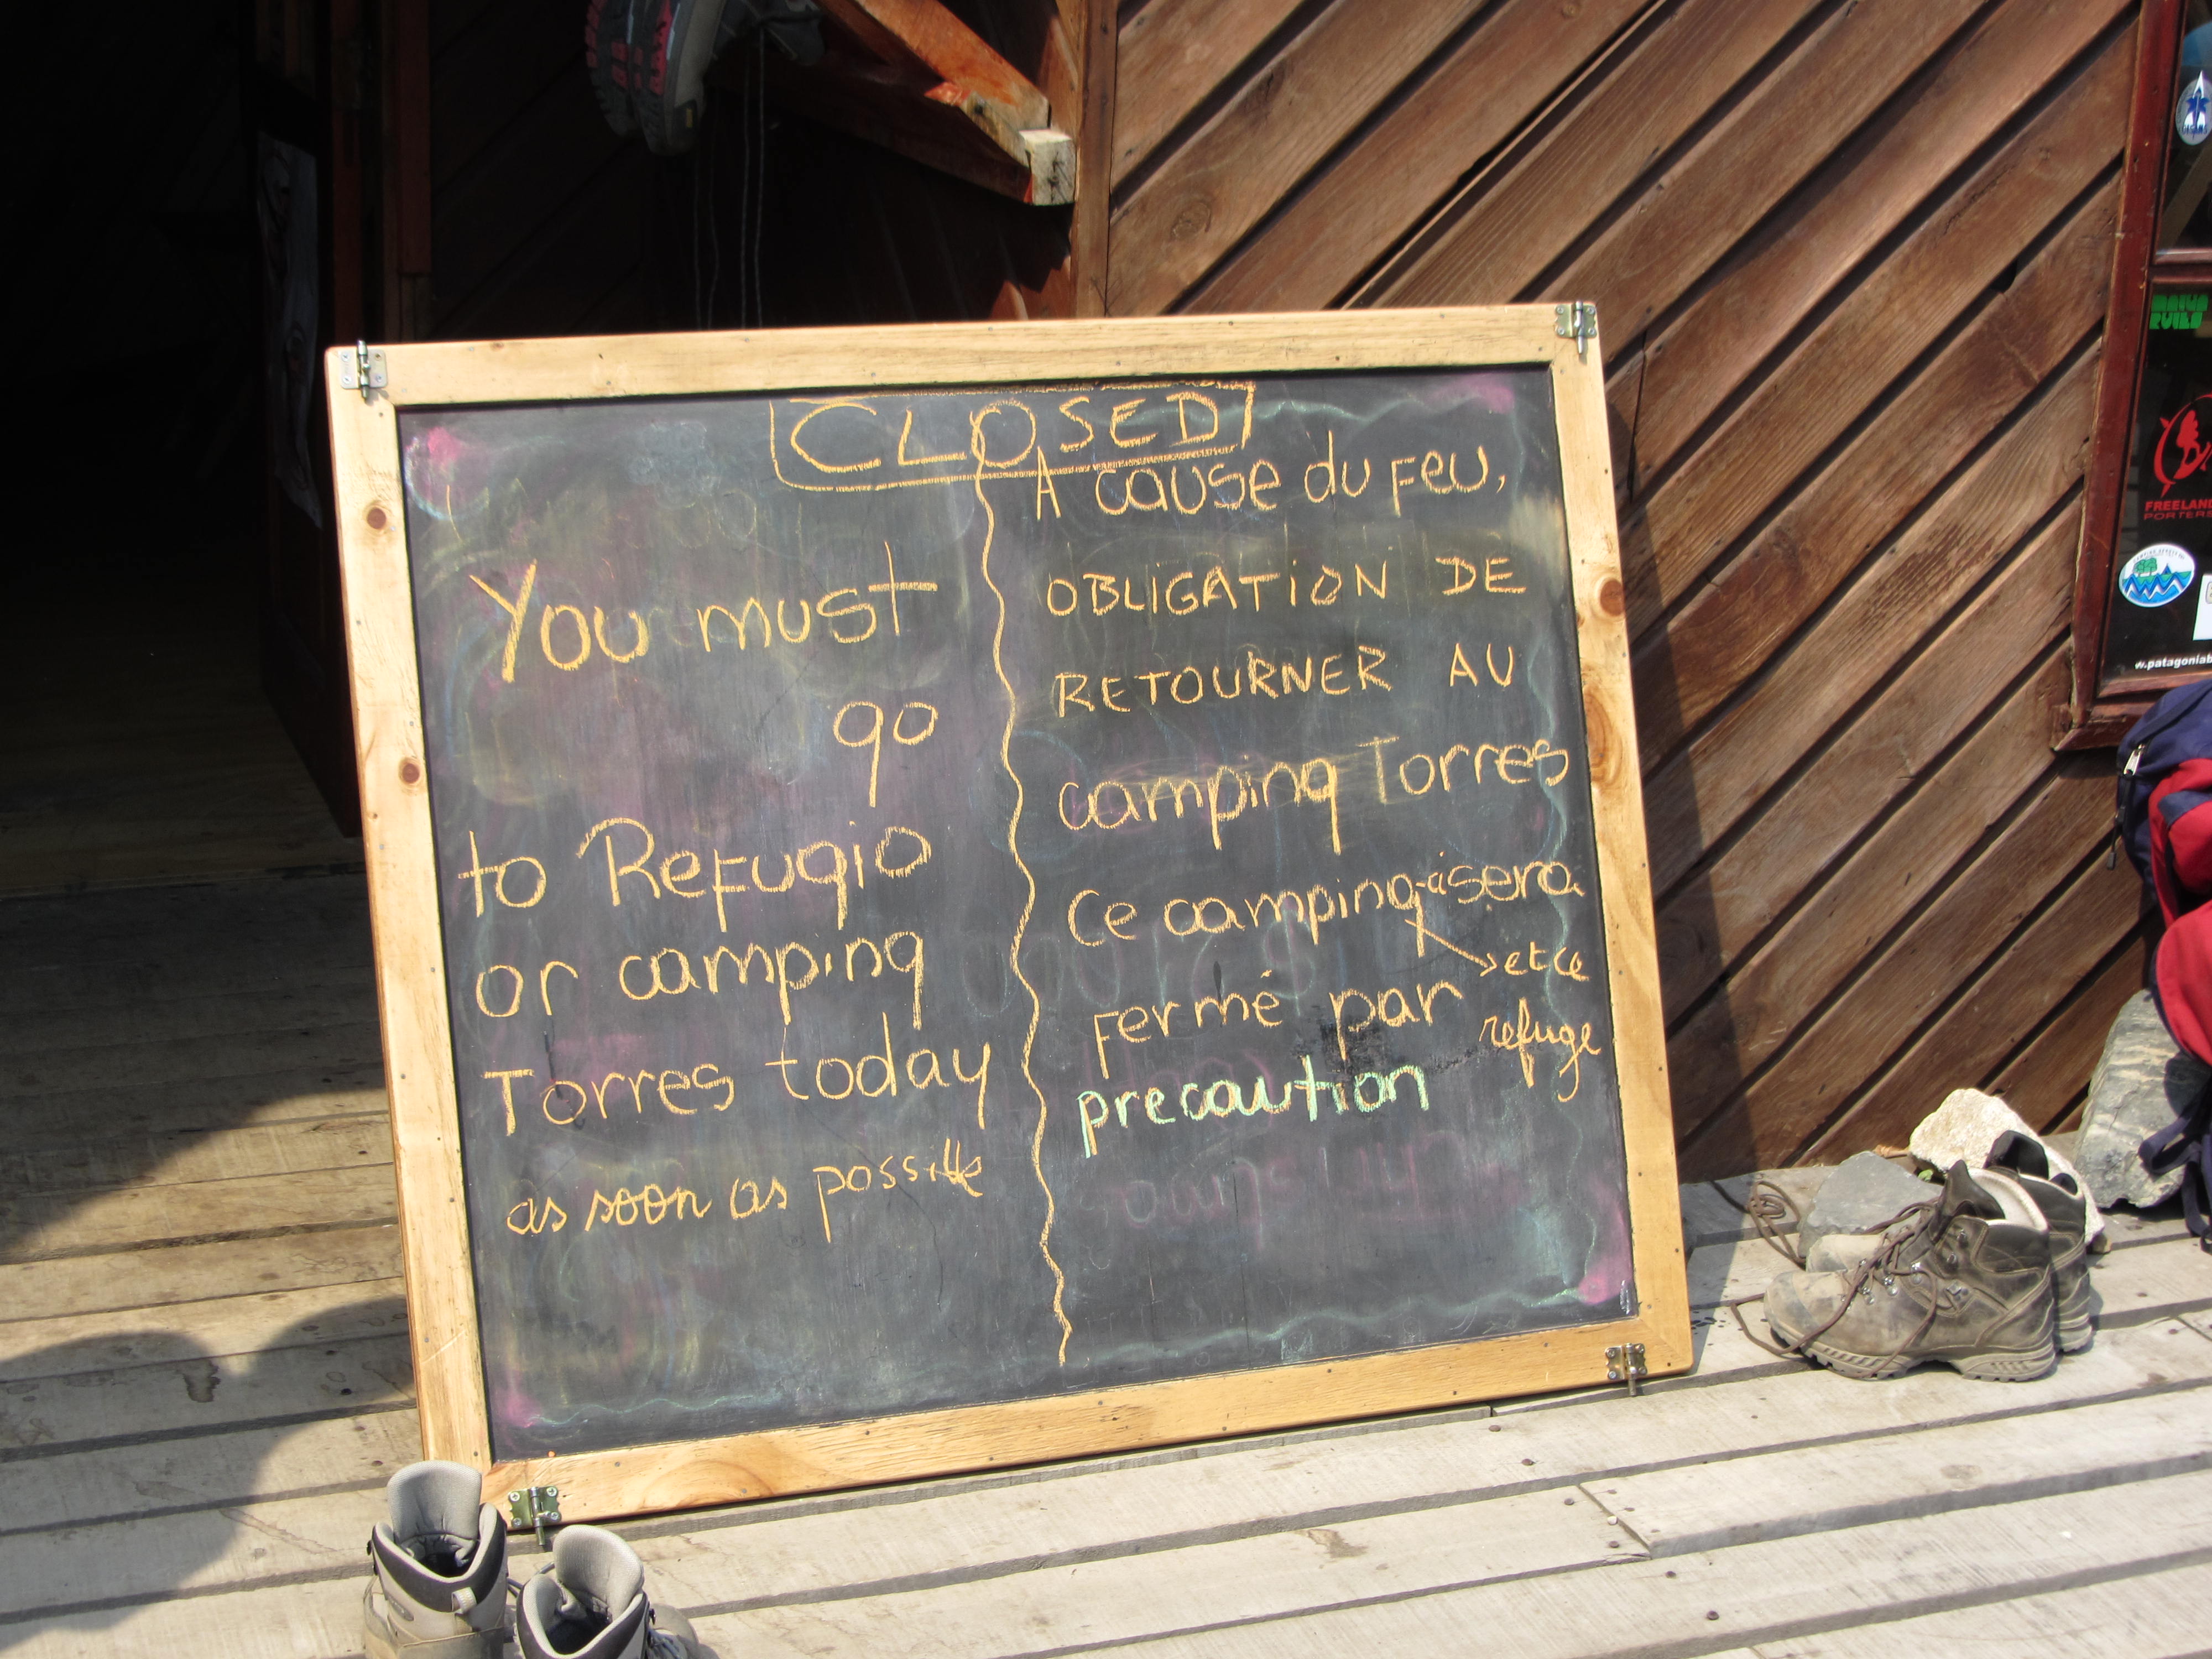 CLOSED
You must
go
to Refugio
or camping
Torres today
as soon as possible
A cause du feu,
OBLIGATION DE
RETOURNER AU
camping Torres
Ce camping sera
et ce
refuge
fermé par
precaution
FREELAN
PORTERS
w.patagoniab